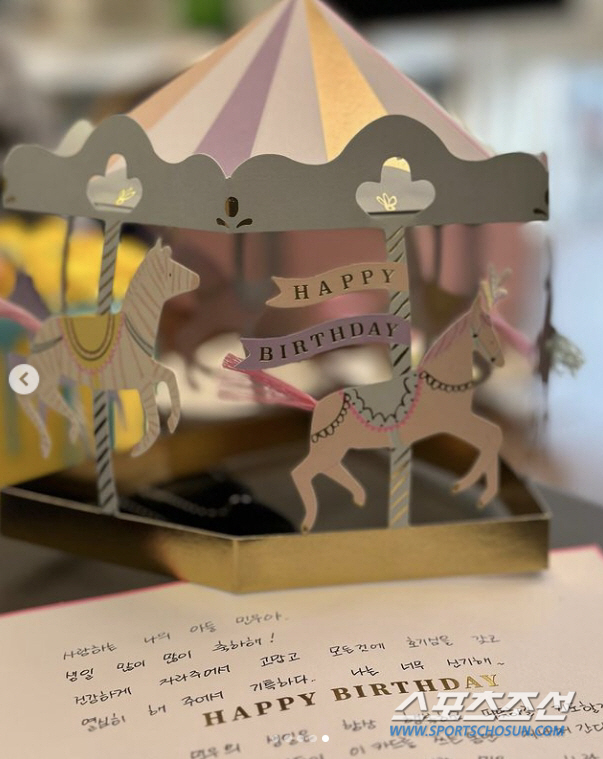 HAPPY
BIRTHDAY
사랑하는 나의 아들 민우야..
생일 많이 많이 축하해!
건강하게 자라주어서 고맙고 모든것에 호기심을 갖고
열심히 해 주어서 기특하다.. 나는 너무 신기해~
HAPPY BIRTHDAY
스포츠조선
WWW.SPORTSCHOSUN.COM
민우의 생일은 항상
이 카드를